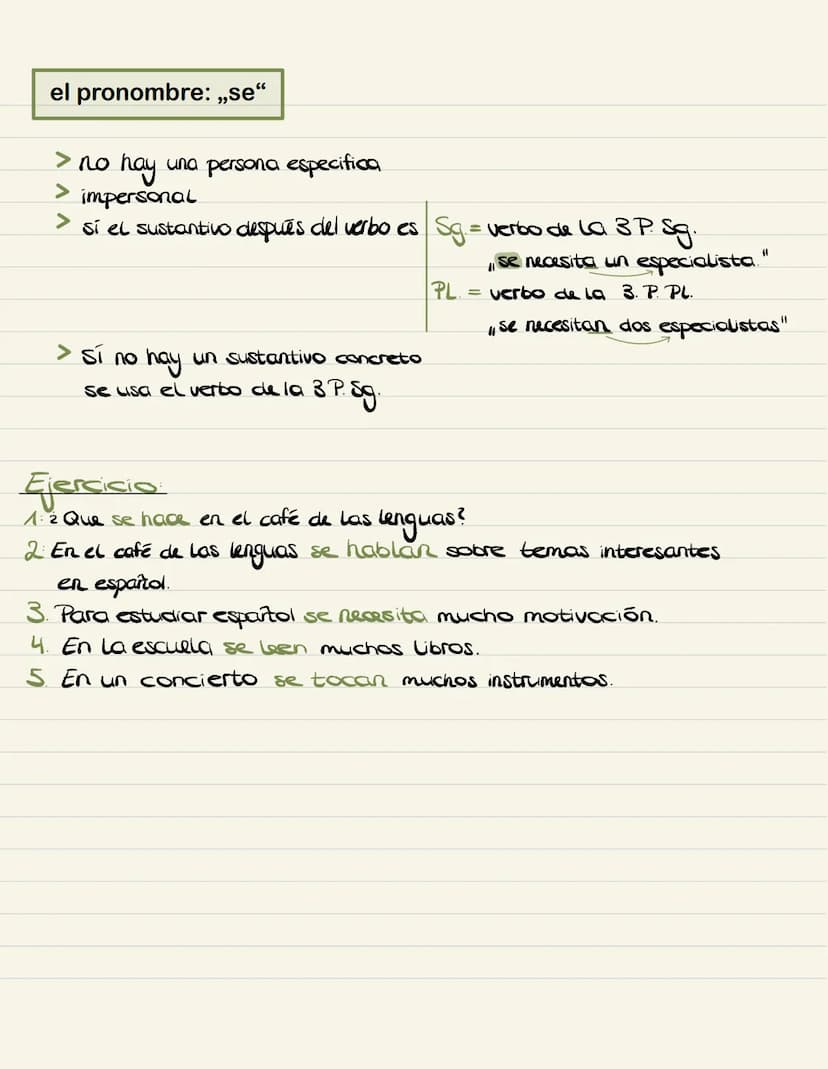 el pronombre: „se“
> no hay una persona especifica
> impersonal
> sí el sustantivo después del verbo es | Sg. = verbo de la 3 P. Sg.
„se necesita un especialista."
PL. = verbo de la 3. P. PL.
„se necesitan dos especialistas"
> sí no hay un sustantivo concreto
se usa el verbo de la 3 P. Sg.
Ejercicio:
1: ¿ Que se hace en el café de las lenguas?
2: En el café de las lenguas se hablan sobre temas interesantes
en español.
3. Para estudiar español se necesita mucho motivación.
4. En la escuela se leen muchos libros.
5. En un concierto se tocan muchos instrumentos.